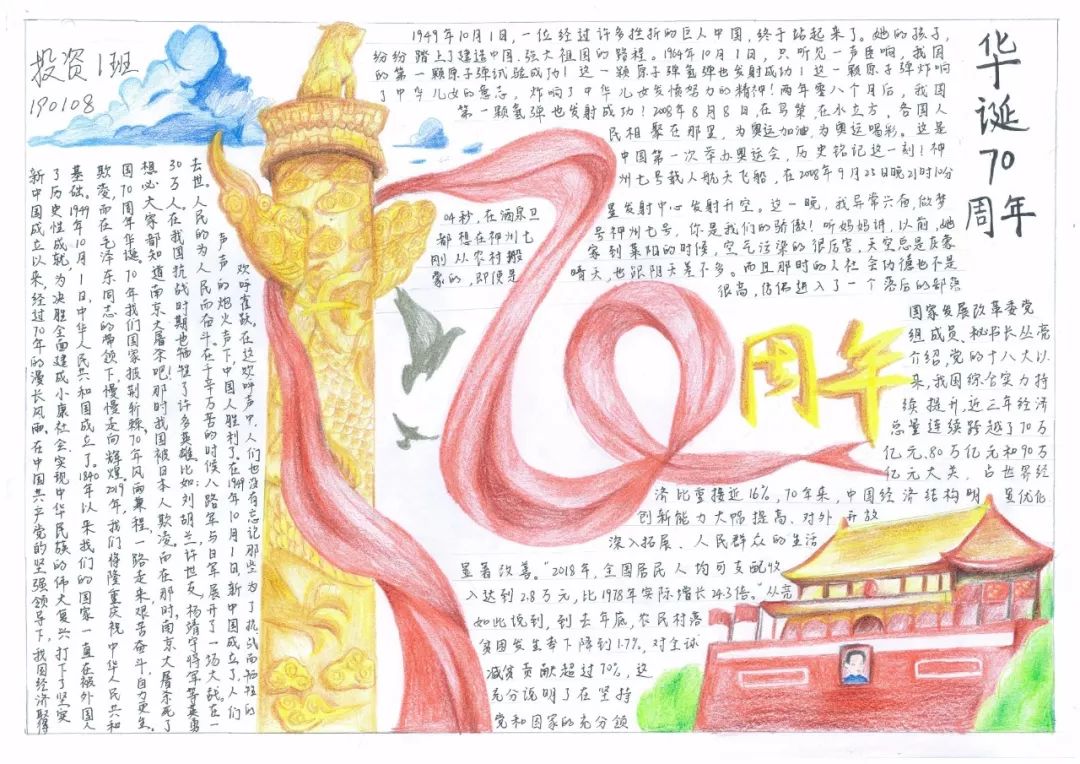 投资1班
190108
华诞70周年
1949年10月1日,一位经过许多挫折的巨人中国,终于站起来了。她的孩子,
纷纷踏上了建造中国,强大祖国的路程。1964年10月1日,只听见一声巨响,我国
的第一颗原子弹试验成功!这一颗原子弹氢弹也发射成功!这一颗原子弹炸响
了中华儿女的意志,炸响了中华儿女发愤努力的精神!两年零八个月后,我国
第一颗氢弹也发射成功!2008年8月8日,在鸟巢,在水立方,各国人
民相聚在那里,为奥运加油,为奥运喝彩。这是
中国第一次举办奥运会,历史铭记这一刻!神
州七号载人航天飞船,在2008年9月25日晚21时10分
04秒,在酒泉卫星发射中心发射升空。这一晚,我异常兴奋,做梦
都想在神州七号神州七号,你是我们的骄傲!听妈妈讲,以前,她
刚从农村搬家到莱阳的时候,空气污染的很厉害,天空总是灰蒙
蒙的,即使是晴天,也跟阴天差不多。而且那时的人社会功德也不是
很高,仿佛进入了一个落后的部落
70
周年
国家发展改革委党
组成员、秘书长丛亮
介绍,党的十八大以
来,我国综合实力持
续提升,近三年经济
总量连续跨越了70万
亿元、80万亿元和90万
亿元大关,占世界经
济比重接近16%,70年来,中国经济结构明显优化
创新能力大幅提高、对外开放
深入拓展、人民群众的生活
显著改善。“2018年,全国居民人均可支配收
入达到2.8万元,比1978年实际增长24.3倍。”丛亮
如此说到,到去年底,农民村落
贫困发生率下降到1.7%,对全球
减贫贡献超过70%,这
充分说明了在坚持
党和国家的充分领
新中国成立以来,经过70年的漫长风雨,在中国共产党的坚强领导下,我国经济取得
了历史性成就,为决胜全面建成小康社会、实现中华民族的伟大复兴打下了坚实
基础。1949年10月1日,中华人民共和国成立了。1840年以来我们的国家一直在被外国人
欺凌,而在毛泽东同志的带领下,慢慢走向辉煌。2019年,我们将隆重庆祝中华人民共和
国70周年华诞,70年我们国家披荆斩棘,70年风雨兼程,一路走来艰苦奋斗,自力更生。
想必大家都知道南京大屠杀吧!那时我国被日本人欺凌而在那时,南京大屠杀死了
30万人。在我国抗战时期也牺牲了许多英雄比如:刘胡兰,许世友,杨靖宇将军等英勇
去世。人民的为人民而奋斗。在千辛万苦的时候,八路军与日军展开了一场大战。在一
声声的炮火声下,中国人胜利了。在1949年10月1日新中国成立了,人们
欢呼雀跃。在这欢呼声中,人们也没有忘记那些为了抗战而牺牲的